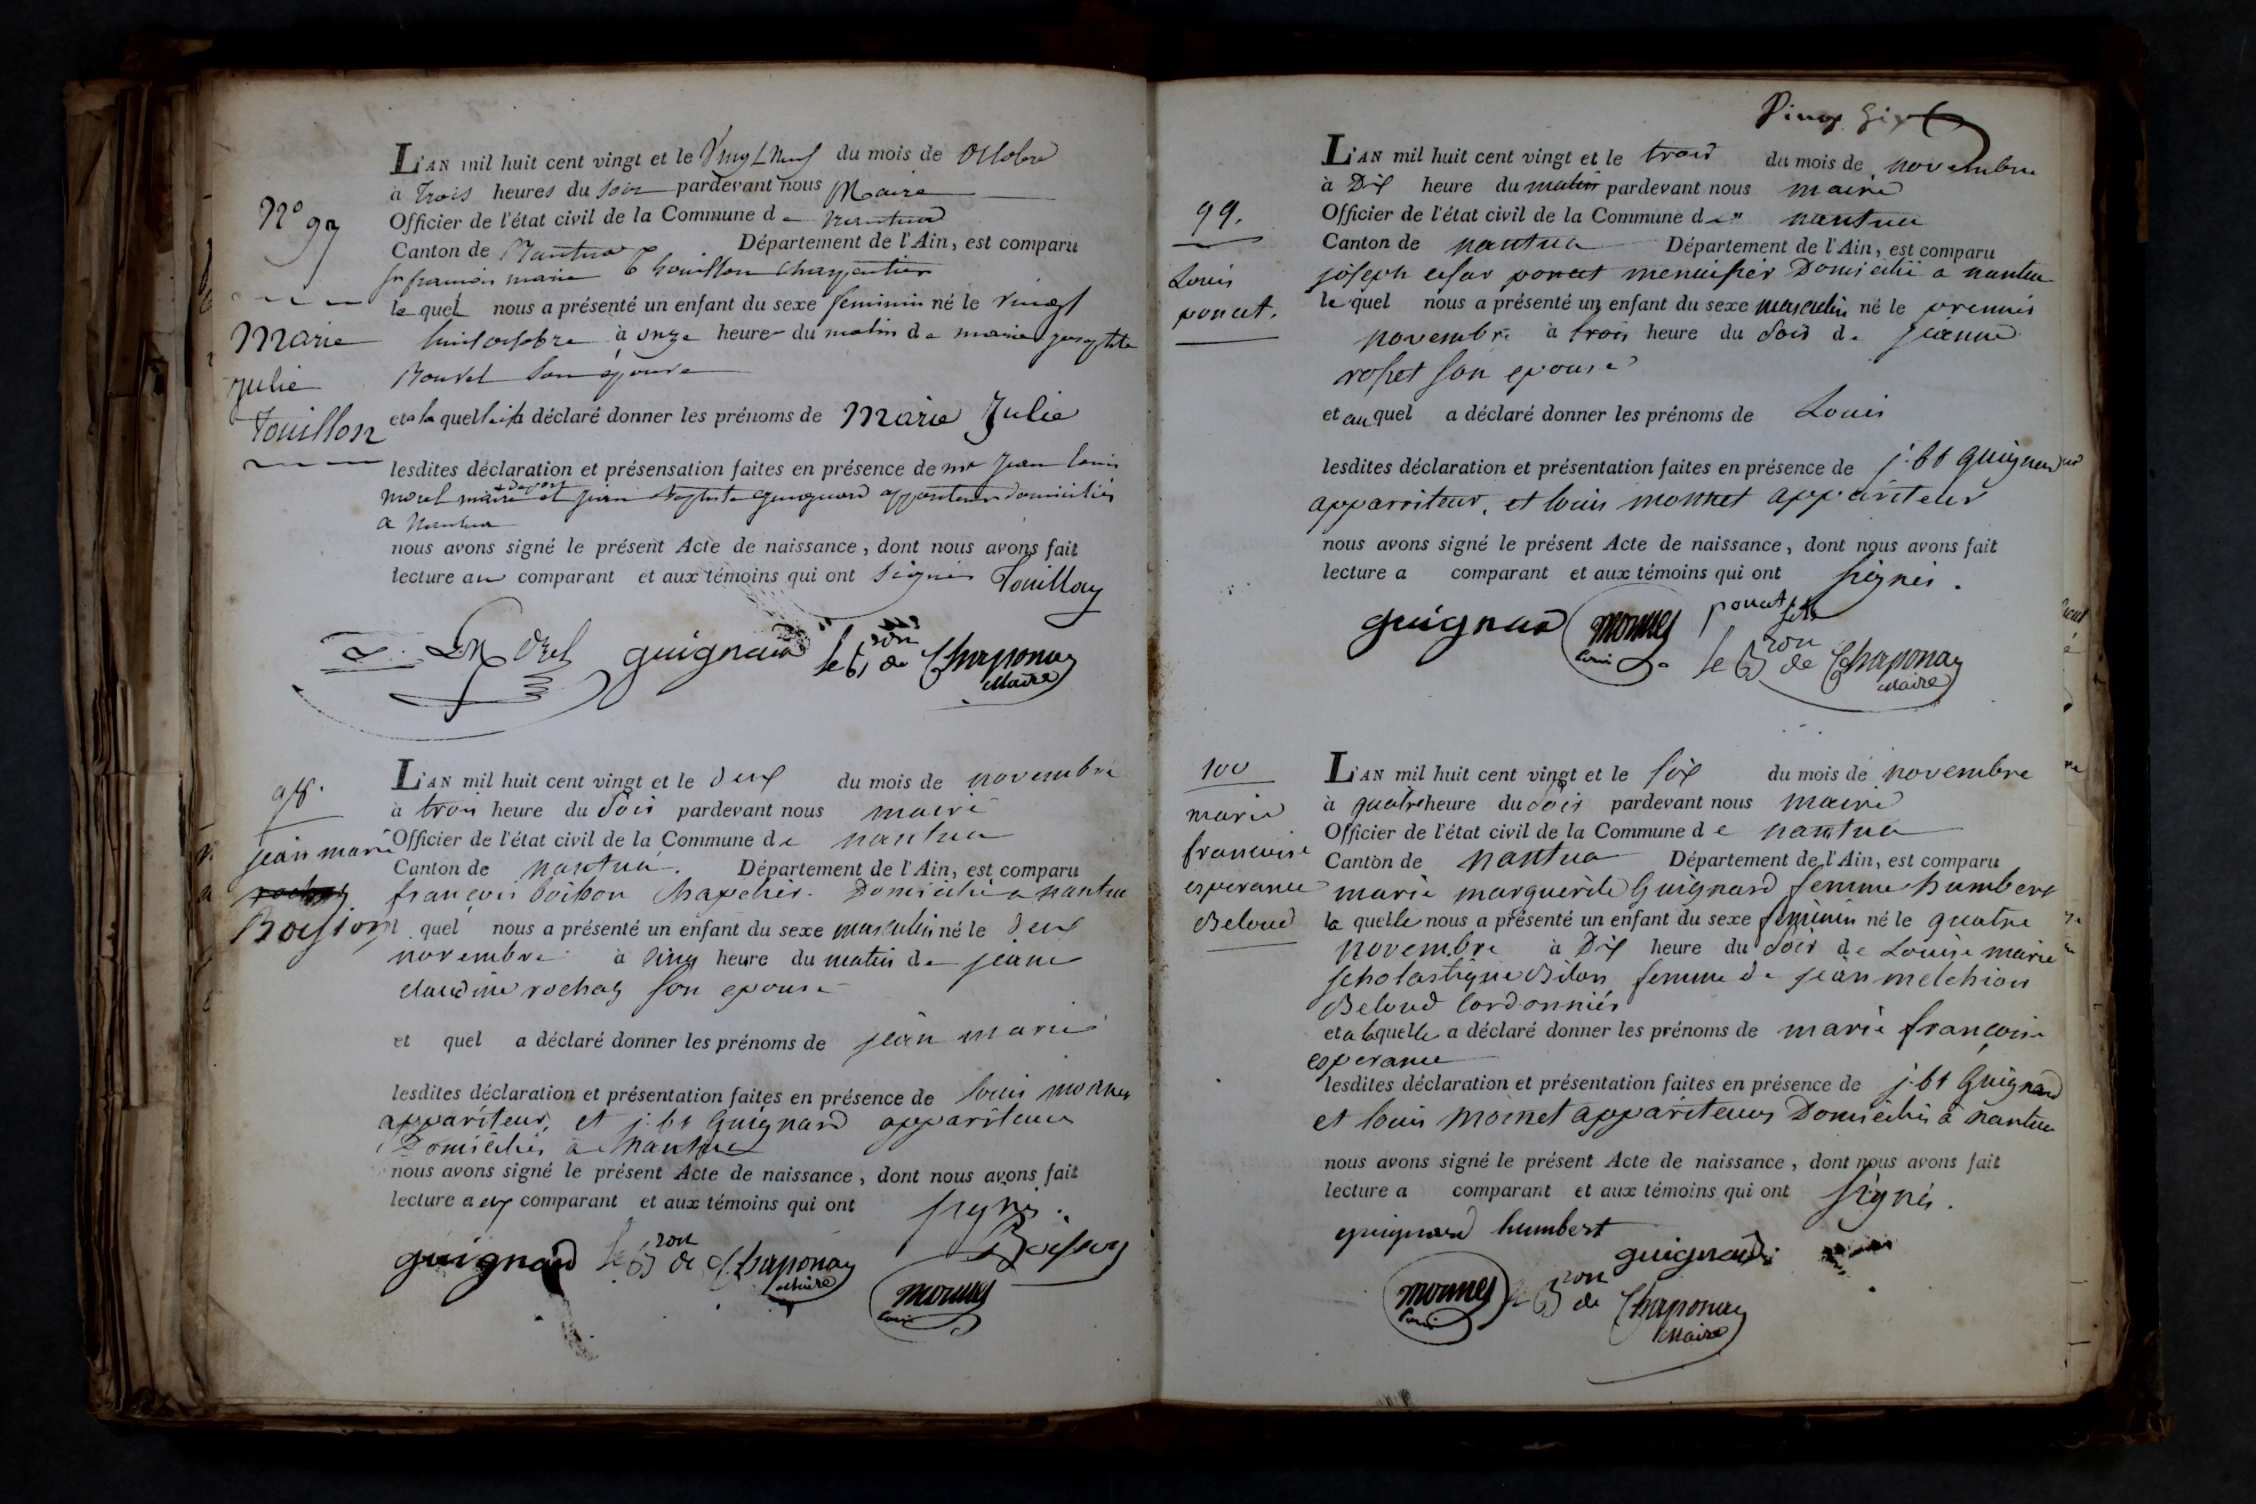 L'AN mil huit cent vingt et le Vingt neuf du mois de octobre
à Trois heures du soir pardevant nous Maire
Officier de l'état civil de la Commune de nantua
Canton de Nantua Département de l'Ain, est comparu
françois marie Thouillon charpentier
le quel nous a présenté un enfant du sexe feminin né le vingt
huit octobre à onze heure du matin de marie
son épouse
et a la quelle il a déclaré donner les prénoms de Marie Julie
lesdites déclaration et présensation faites en présence de mr Jean Louis
morel maire et jean Baptiste guignard domiciliés
a nantua
nous avons signé le présent Acte de naissance, dont nous avons fait
lecture au comparant et aux témoins qui ont signés Touillon
Morel guignard le Bron de Chaponay
Maire
N° 97
Marie
Julie
Touillon
98.
jean marie
rochay
Boysson
L'AN mil huit cent vingt et le deux du mois de novembre
à trois heure du soir pardevant nous maire
Officier de l'état civil de la Commune de nantua
Canton de nantua. Département de l'Ain, est comparu
françois boisson Domicilié a nantua
l quel nous a présenté un enfant du sexe masculin né le deux
novembre à cinq heure du matin de jeane
claudine rochay son epouse
et quel a déclaré donner les prénoms de jean marie
lesdites déclaration et présentation faites en présence de louis monnet
appariteur, et j. bt Guignard appariteur
Domiciliés a nantua
nous avons signé le présent Acte de naissance, dont nous avons fait
lecture a comparant et aux témoins qui ont signés.
guignard le Bron de Chaponay
Maire
Boisson
monnet
Louis
99.
Louis
ponçet.
L'AN mil huit cent vingt et le trois du mois de novembre
à Dix heure du matin pardevant nous maire
Officier de l'état civil de la Commune de nantua
Canton de nantua Département de l'Ain, est comparu
joseph menuisier Domicilié a nantua
le quel nous a présenté un enfant du sexe masculin né le premier
novembre à trois heure du soir de jeanne
rosset son epouse
et au quel a déclaré donner les prénoms de Louis
lesdites déclaration et présentation faites en présence de j. bt guignard
apparriteur, et louis monnet appariteur
nous avons signé le présent Acte de naissance, dont nous avons fait
lecture a comparant et aux témoins qui ont signés.
guignard monnet
Louis
le Bron de Chaponay
Maire
100
marie
francoise
esperance
Beloud
L'AN mil huit cent vingt et le six du mois de novembre
à quatre heure du soir pardevant nous maire
Officier de l'état civil de la Commune de nantua
Canton de nantua Département de l'Ain, est comparu
marie marguerite Guignard femme humbert
la quelle nous a présenté un enfant du sexe féminin né le quatre
novembre à Dix heure du soir de Louise marie
scholastique femme de jean melchior
Beloud cordonnier
et a laquelle a déclaré donner les prénoms de marie françoise
esperance
lesdites déclaration et présentation faites en présence de j. bt Guignard
et louis monnet appariteurs Domiciliés à nantua
nous avons signé le présent Acte de naissance, dont nous avons fait
lecture a comparant et aux témoins qui ont signés.
guignard humbert
guignard
monnet
Louis
le Bron de Chaponay
Maire